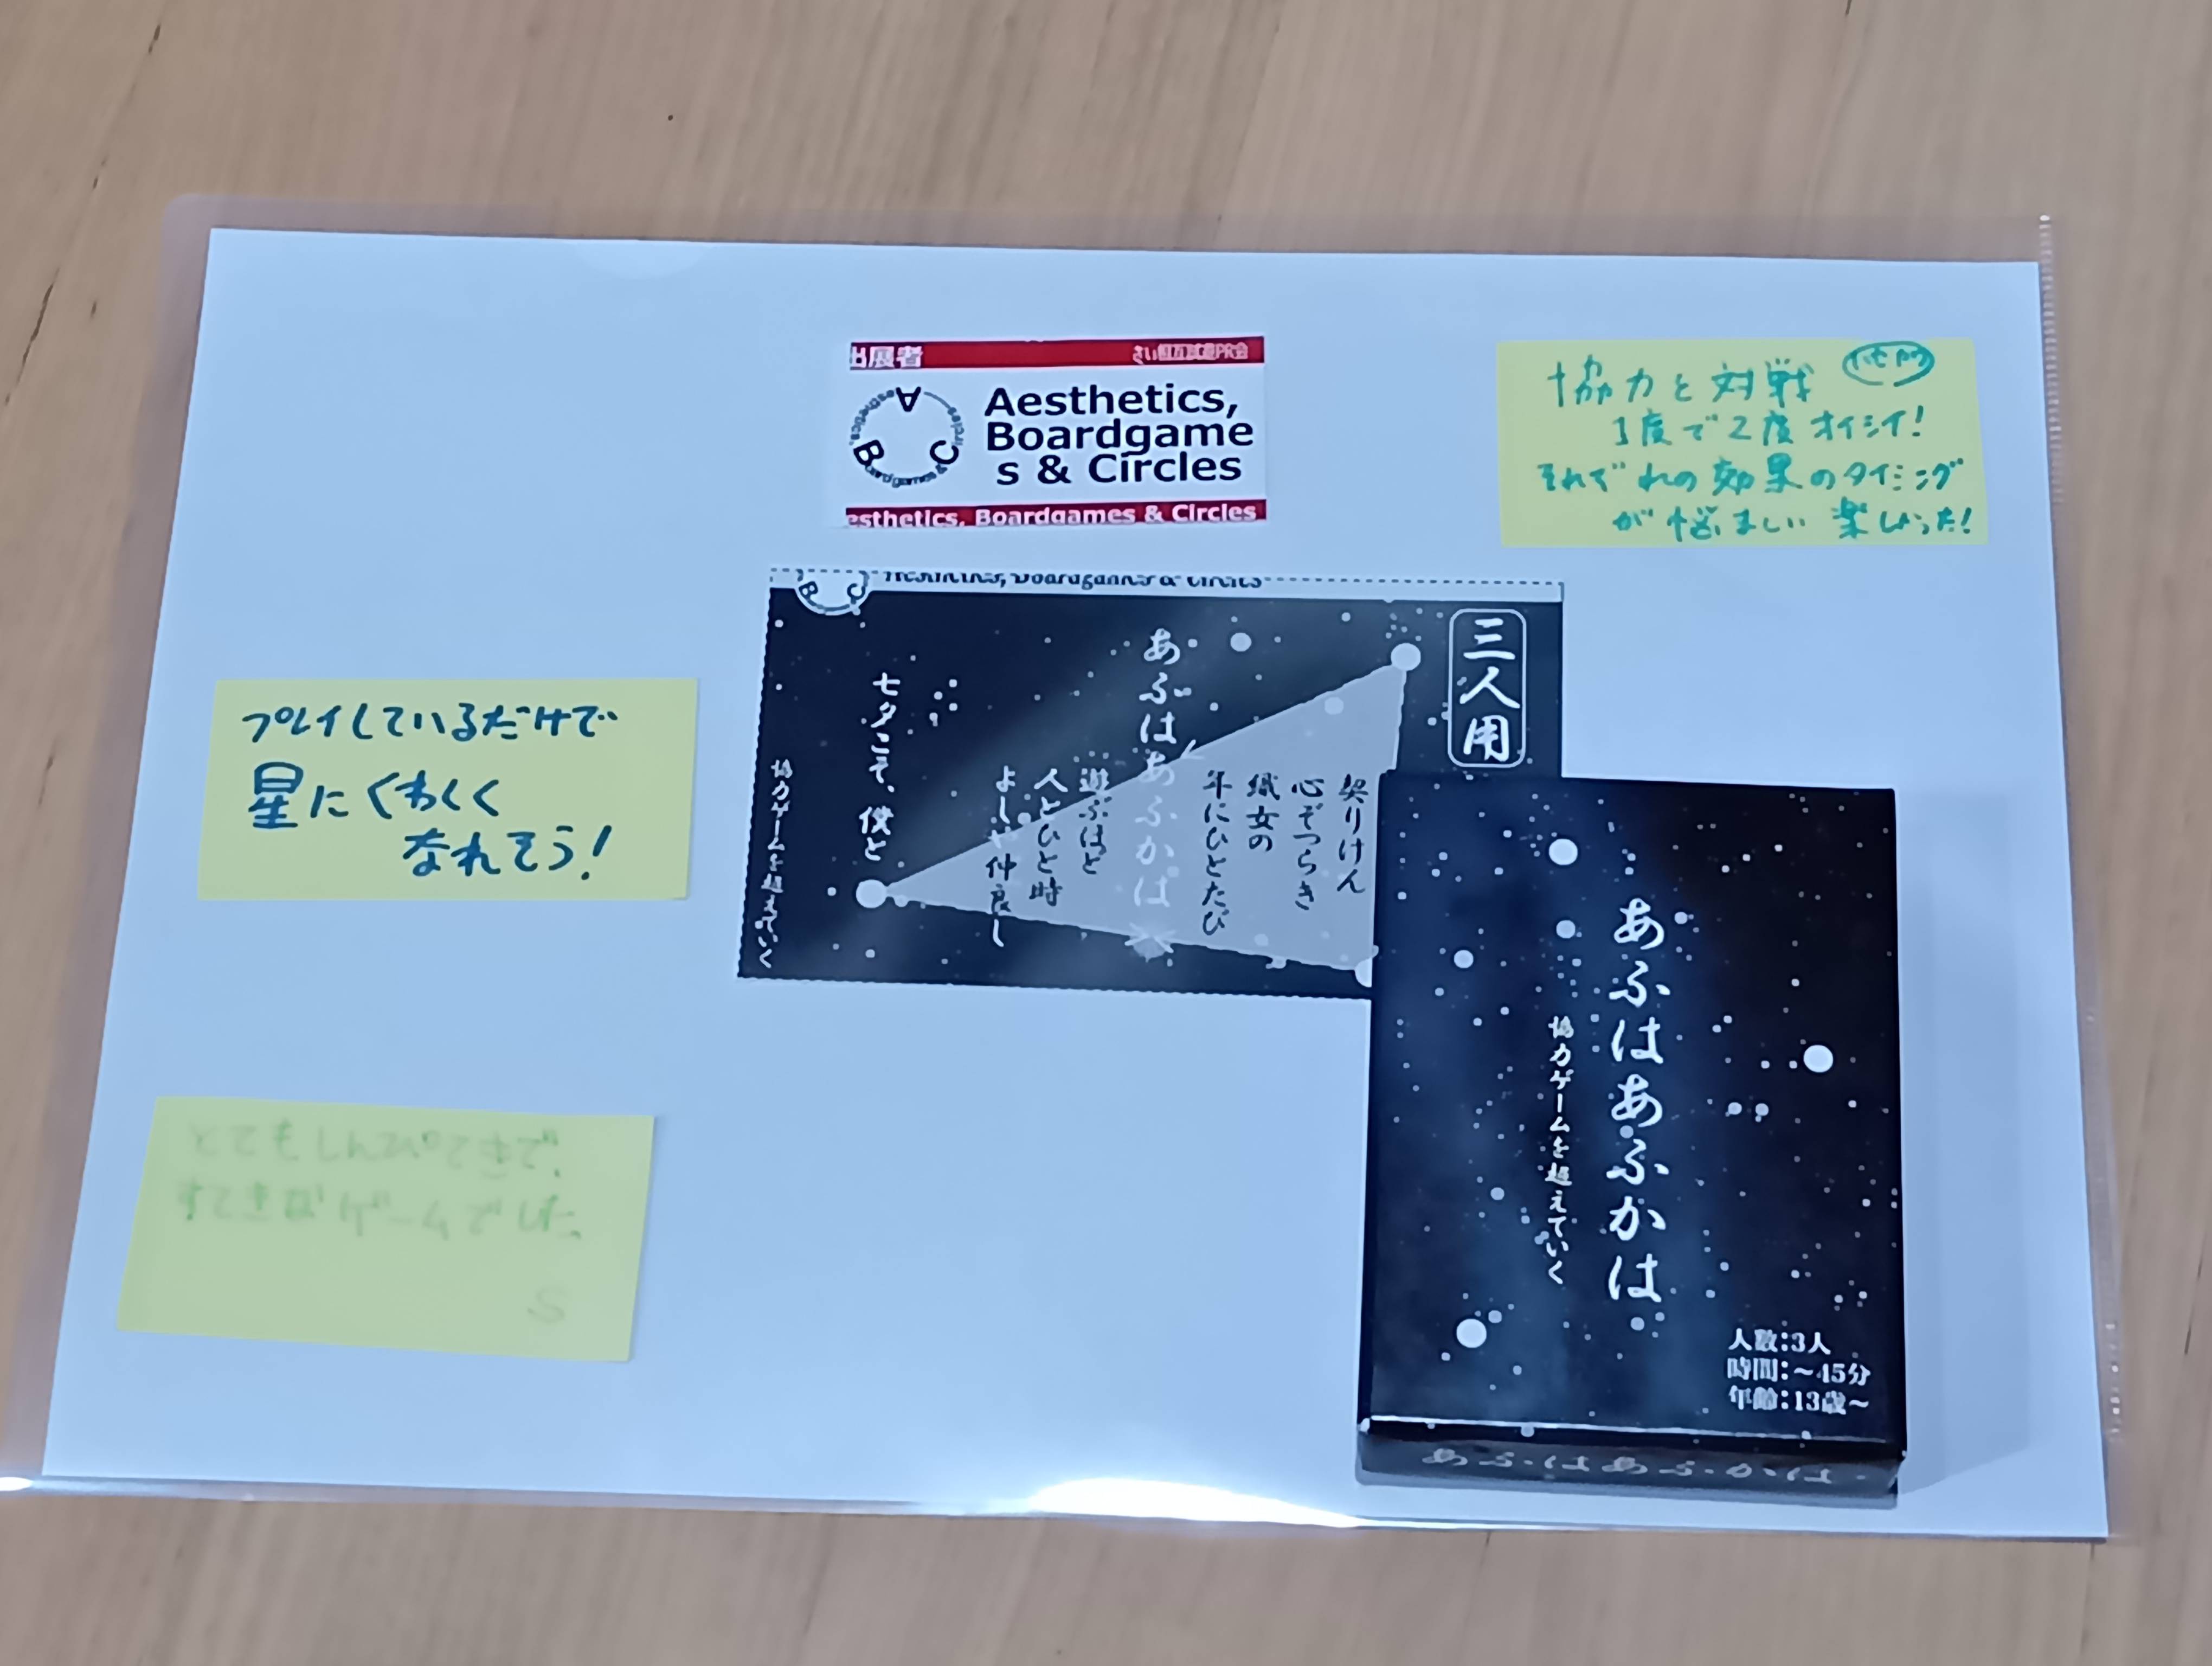 出展者
さい相互試遊PR会
A
B
C
Aesthetics,
Boardgames &
Circles
Aesthetics,
Boardgame
s & Circles
esthetics, Boardgames & Circles
協力と対戦
1度で2度オイシイ!
それぞれの効果のタイミング
が悩ましい 楽しかった!
B C
Aesthetics, Boardgames & Circles
三人用
契りけん
心ぞつらき
織女の
年にひとたび
あふはあふかは
遊ぶほど
人とひと時
よしや仲良し
七夕こそ、僕と
協力ゲームを超えていく
プレイしているだけで
星にくわしく
なれそう!
とてもしんぴてきで、
すてきなゲームでした。
S
あふはあふかは
協力ゲームを超えていく
人数:3人
時間:~45分
年齢:13歳~
あふはあふかは